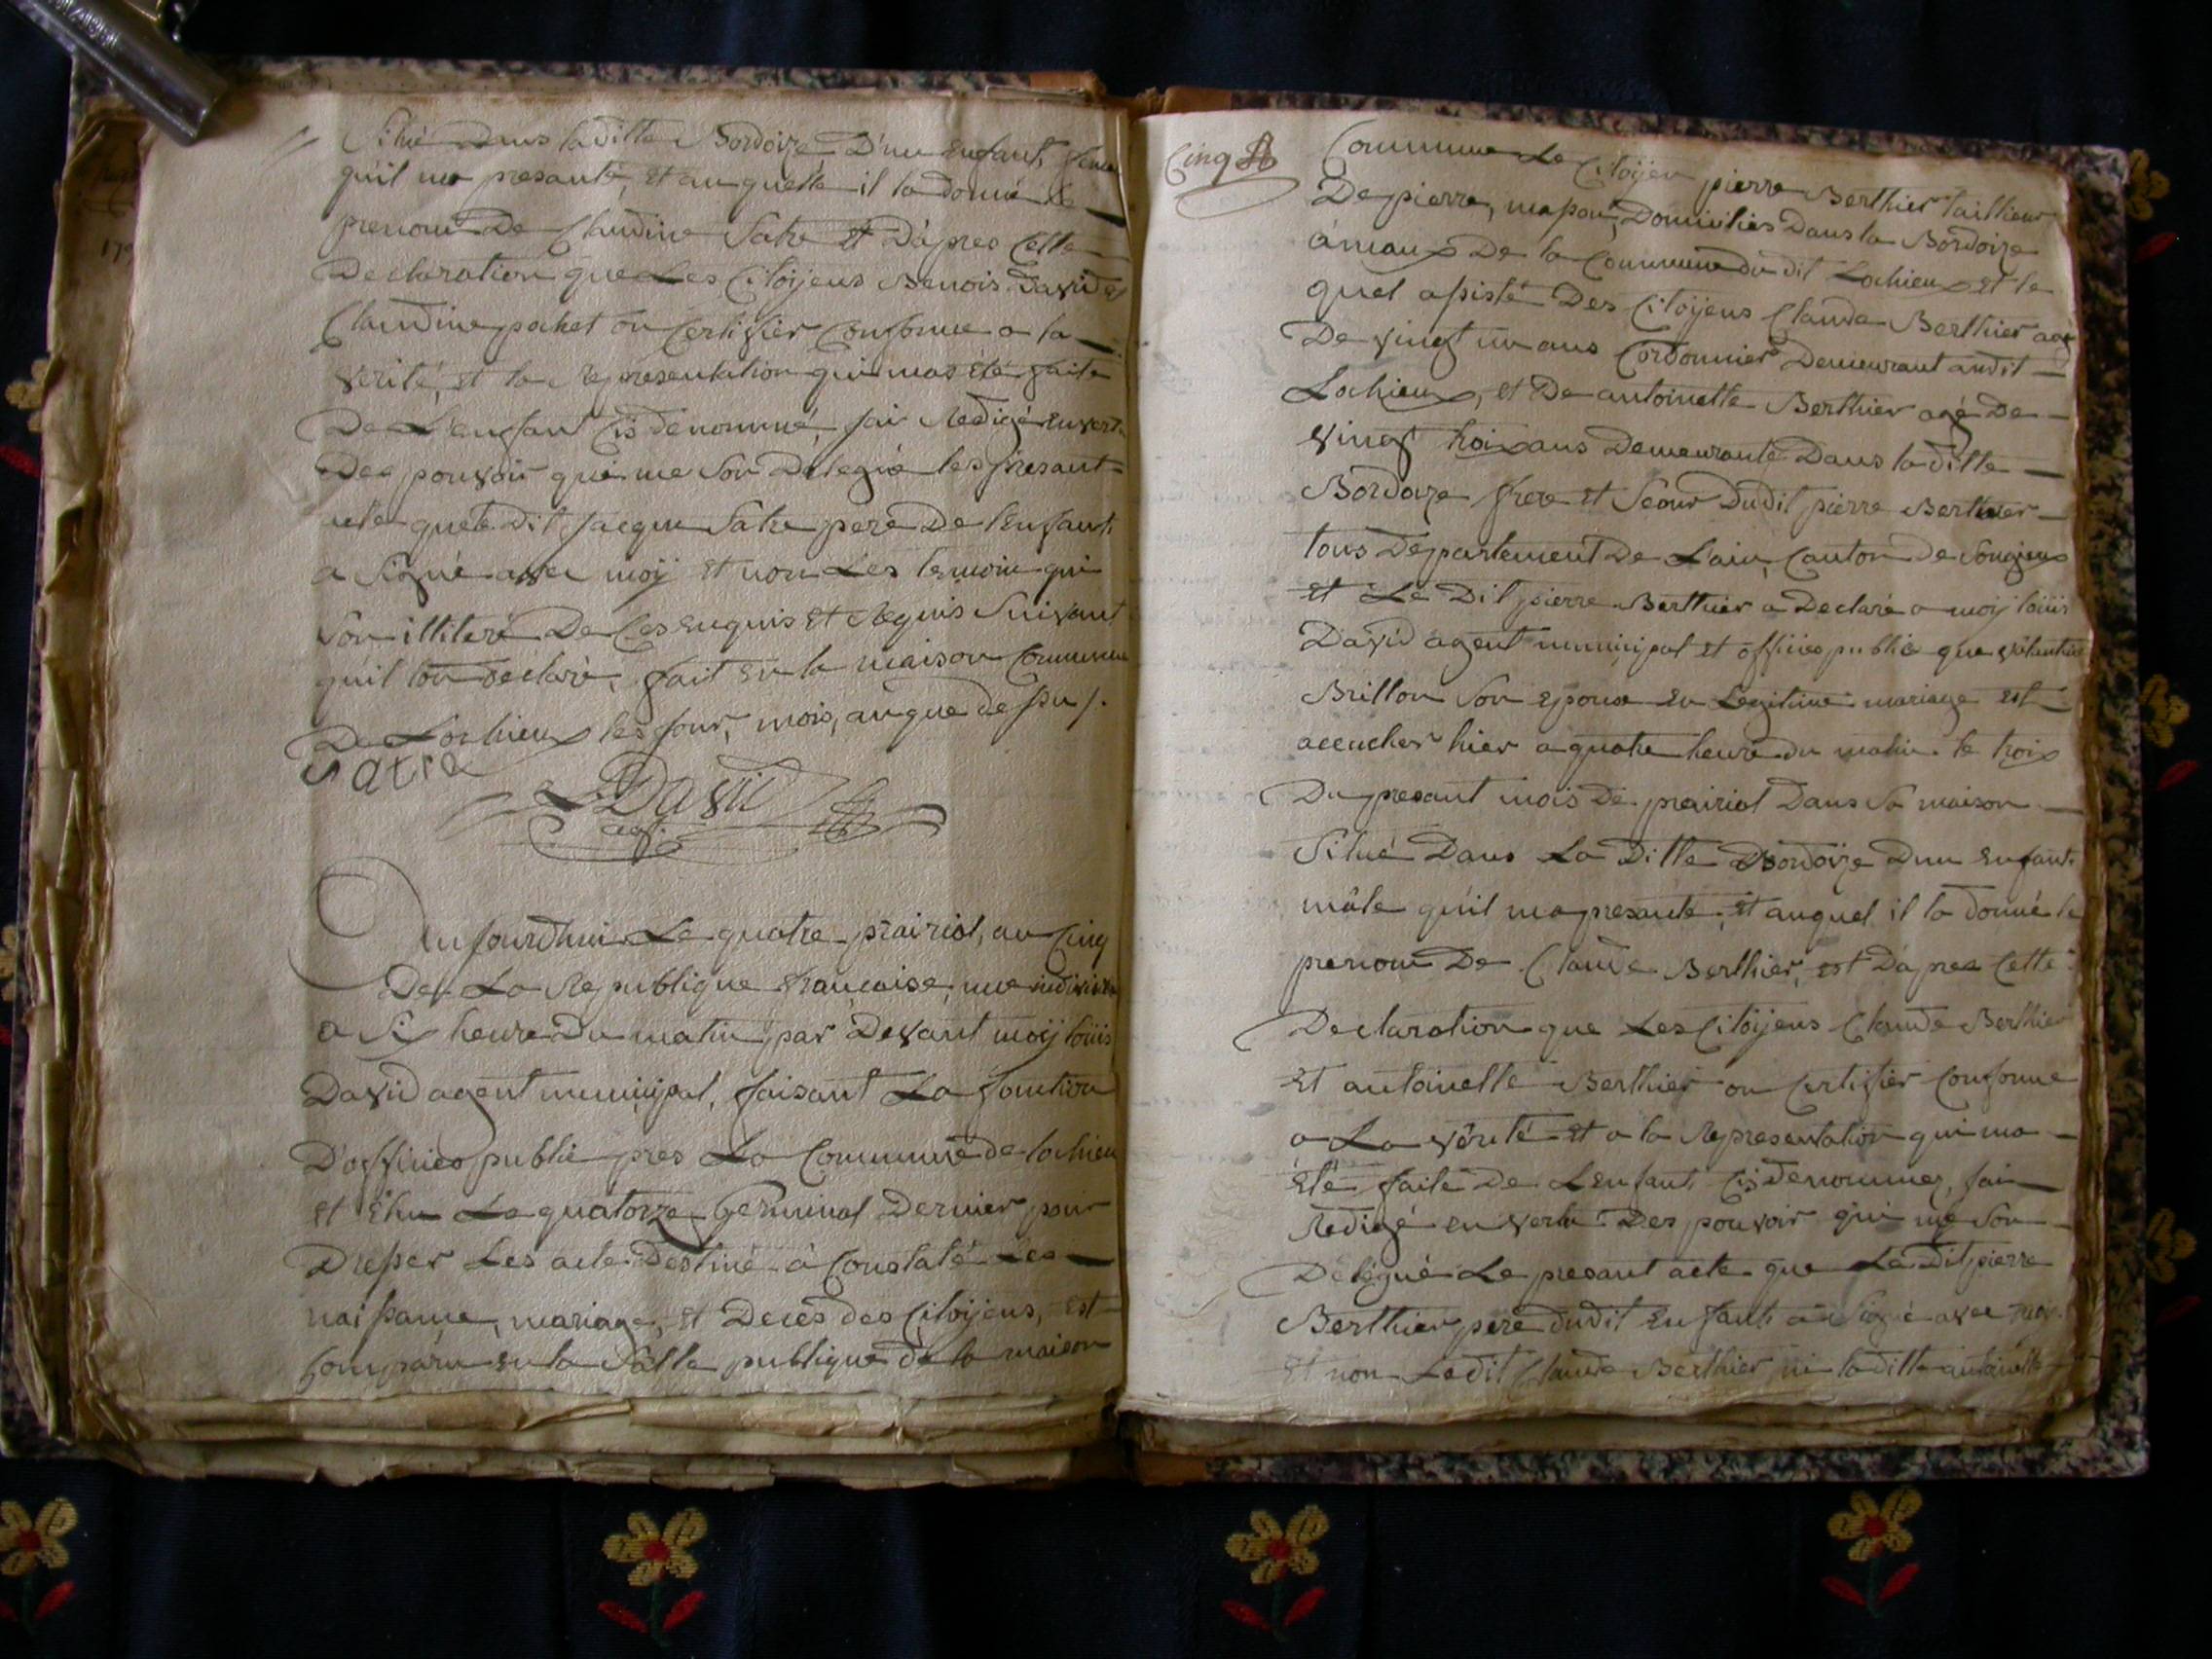 Situé Dans la ditte Bordoize D'un Enfant femel
qu'il ma presanté, et au quelle il la donné le
prenom De Claudine Satre et D'apres Cette
Declaration que Les Citoijens Benois David et
Claudine pochet on Certifier Conforme a la
verité, et la Representation qui mas été faite
De L'enfant Cis denommé, jai Redigé En vertu
Des pouvoir qui me Son Delegué les presant
acte que le dit Jacque Satre pere De l'Enfant
a Signé avec moij et non Les temoin qui
Son illiteré De Ces Enquis et Requis Suivant
qu'il lon déclaré, fait En la maison Commune
De Lochieux les jour, mois, an que dessu /.
Satre
L. David
agt.
Aujourdhui Le quatre prairial, an Cinq
De La Republique francaise, une indivisible
a Six heure Du matin, par Devant moij louis
David agent municipal, faisant La fonction
D'officies public pres La Commune de lochieu
et Elu Le quatorze Germinal Dernier pour
Dresser Les acte Destiné à Constaté Les
naissance, mariage, et Decés des Citoijens, est
Comparu en la Salle publique de la maison
Cinq
Commune Le Citoijen pierre Berthier taillieur
De pierre, masson, Domiciliés Dans la Bordoize
ámaux De la Commune du dit Lochieux et le
quel assisté Des Citoijens Claude Berthier agé
De vingt un ans Cordonnier Demeurant audit
Lochieux, et De antoinette Berthier agé De
vingt troix ans Demeurante Dans la ditte
Bordoize frere et Seour Dudit pierre Berthier
tous Departement De Lain, Canton de Songieux
et Le Dit pierre Berthier a Declaré a moij louis
David agent municipal et officies public que
Brillon Son Epouse en Legitime mariage est
accucher hier a quatre heure du matin le troix
Du presant mois De prairial Dans Sa maison
Situé Dans La Ditte Bordoize Dun Enfant
mâle qu'il ma presanté, et auquel il la donné le
prenom De Claude Berthier, est D'apres Cette
Declaration que Les Citoijens Claude Berthier
et antoinette Berthier on Certifier Conforme
a La vérité et a la Representation qui ma
été faite De LEnfant Cis denommez, jai
Redigé en vertu Des pouvoir qui me Son
Délégué Le presant acte que Le Dit pierre
Berthier pere dudit Enfant a Signé avec moi
Et non Ledit Claude Berthier ni la ditte antoinette